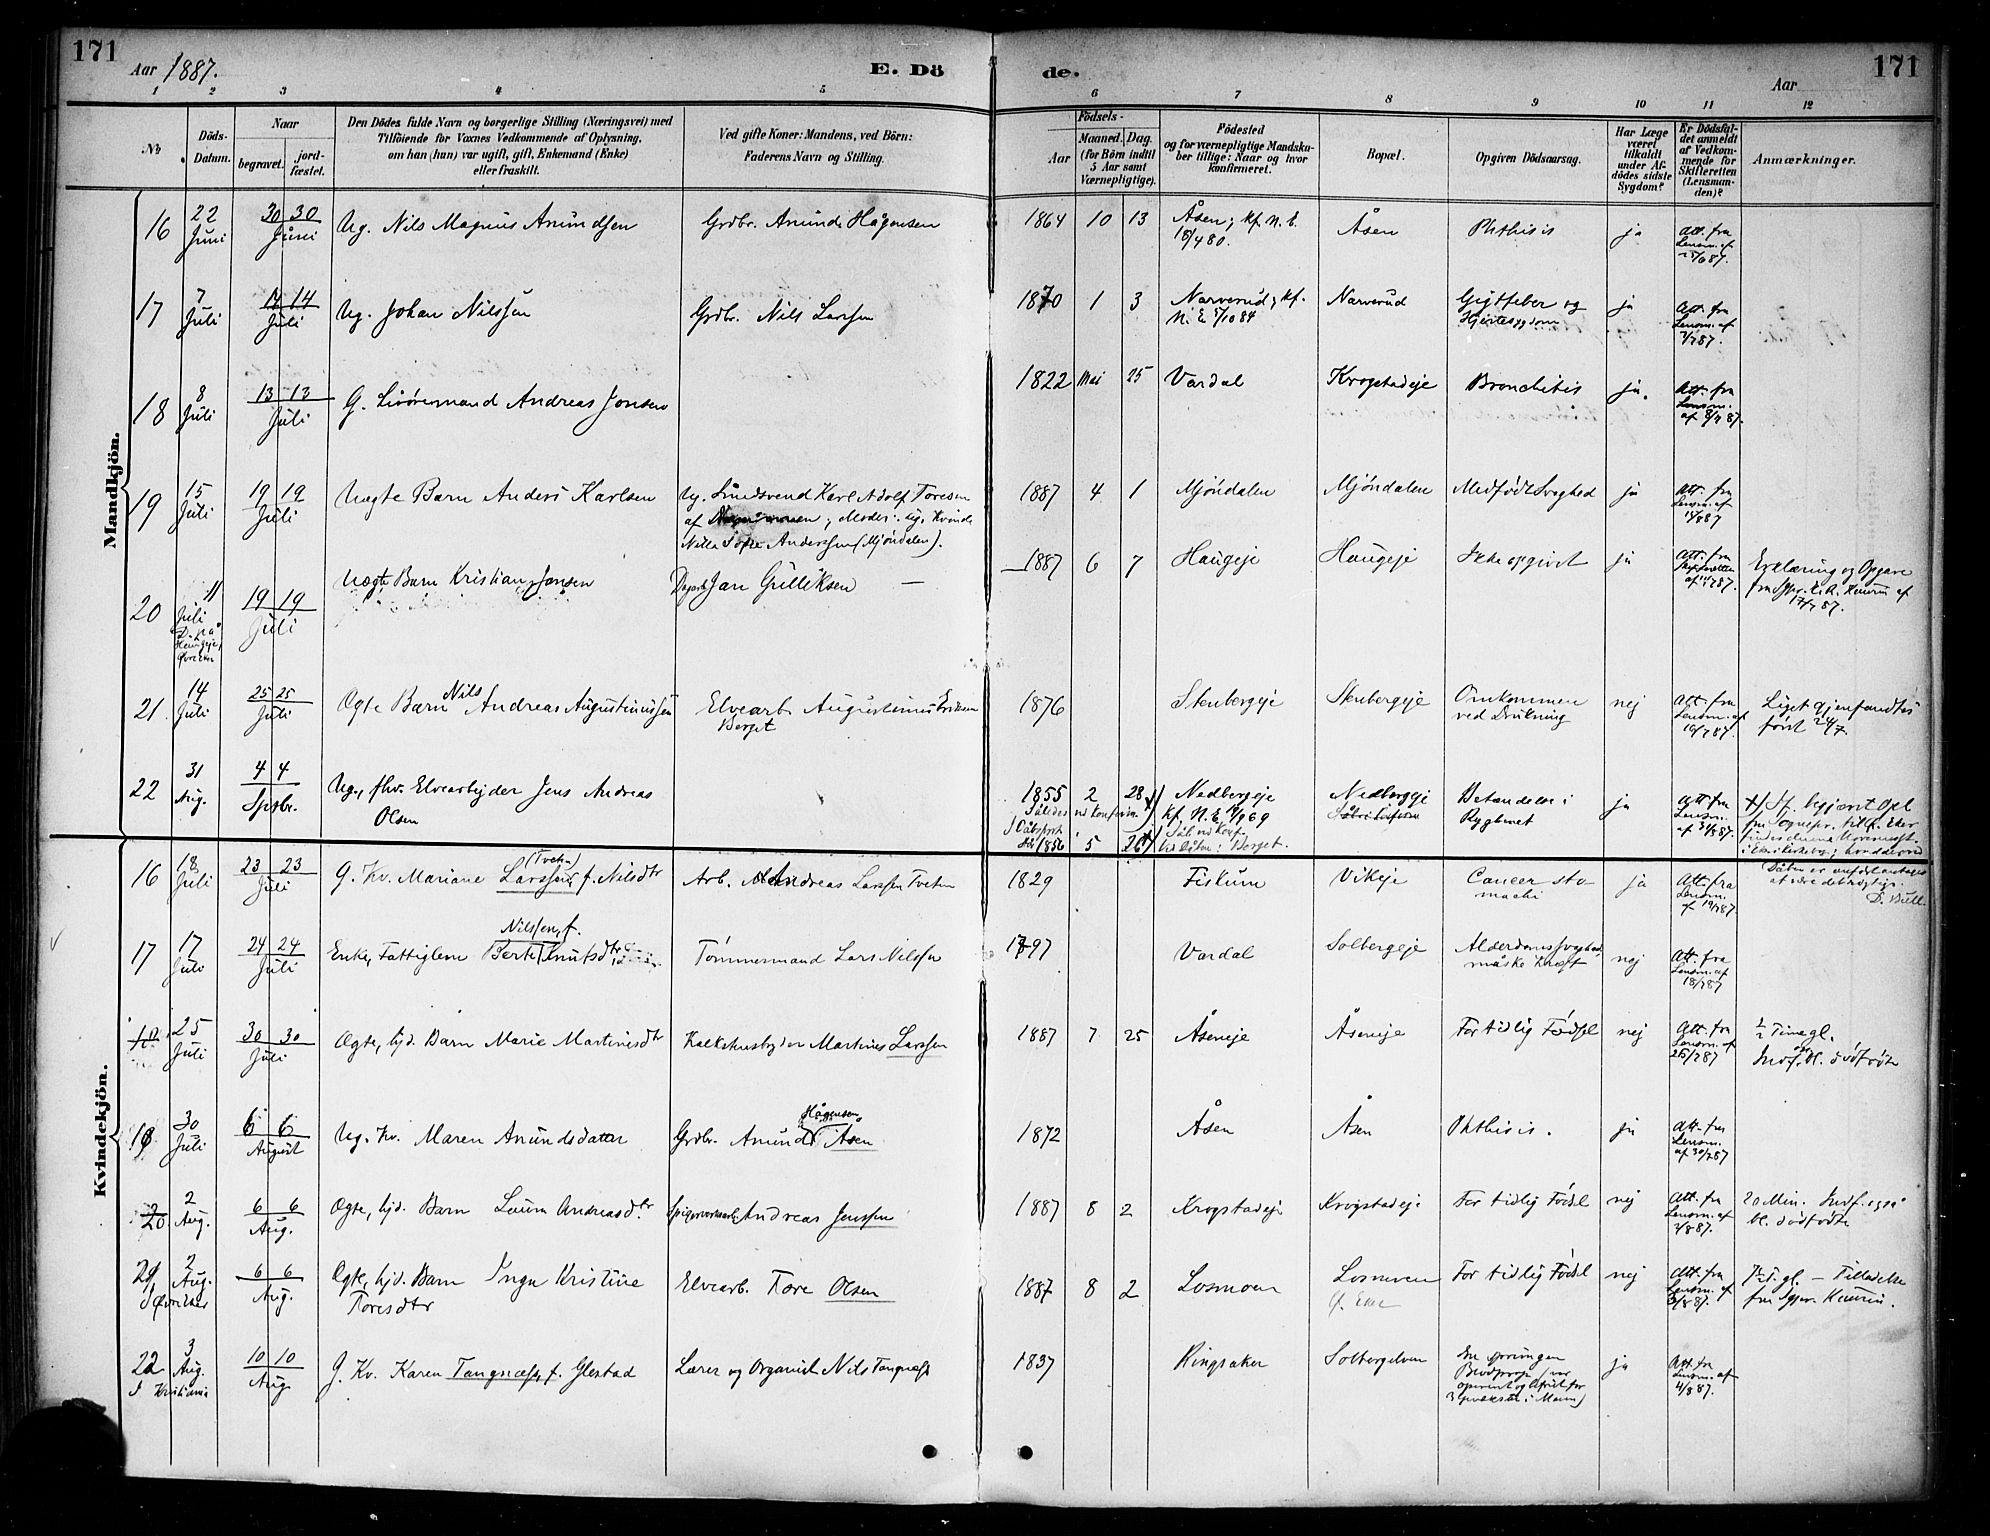 171
Aar 1887.
E. Dö
de.
Aar
171
1 2 3 4 5 6 7 8 9 10 11 12
№
Döds-
Datum.
Naar
begravet.
jord-
fæstet.
Den Dödes fulde Navn og borgerlige Stilling (Næringsvei) med
Tilföiende for Voxnes Vedkommende af Oplysning,
om han (hun) var ugift, gift, Enkemand (Enke)
eller fraskilt.
Ved gifte Koner: Mandens, ved Börn:
Faderens Navn og Stilling.
Födsels-
Aar
Maaned.
Dag.
(for Börn indtil
5 Aar samt
Værnepligtige).
Födested
og for værnepligtige Mandsku-
ber tillige: Naar og hvor
konfirmeret.
Bopæl.
Opgiven Dödsaarsag.
Har Læge
været
tilkaldt
under Af-
dödes sidste
Sygdom?
Er Dödsfal-
det anmeldt
af Vedkom-
mende for
Skifteretten
(Lensman-
den)?
Anmærkninger.
Mandkjön.
16 22 Juni 30 30 Juni Ug. Nils Magnus Amundsen Grdbr. Amund Hågensen 1864 10 13 Åsen; kf. N. E. 18/4 80. Åsen Phthisis ja Att. fra Lensm. af
17 7 Juli 14 14 Juli Ug. Johan Nilssen Grdbr. Nils Larssen 1870 1 3 Narverud; kf. N. E. 5/10 84 Narverud Gigtfeber og Hjertesygdom ja Att. fra Lensm. af 7/7 87.
18 8 Juli 13 13 Juli G. Andreas Jonsen 1822 Mai 25 Vardal Krogstadeje Bronchitis ja. Att. fra Lensm. af 8/7 87.
19 15 Juli 19 19 Juli Uægte Barn Anders Karlsen Ug. Karl Adolf Toresen
af Moder: ug. Kvinde
Sofie Anderssen (Mjöndalen).
1887 4 1 Mjöndalen Mjöndalen Medfödt Svaghed ja Att. fra Lensm. af
20 11 Juli D. på Haugeje, Øvre Eker 19 19 Juli Uægte Barn Kristian Jansen Jan Gulliksen — 1887 6 7 Haugeje Haugeje Ikke opgivet ja Att. fra Erklæring og Opgave
fra af 17/7 87.
21. 14 Juli 25 25 Juli Ægte Barn Nils Andreas Augustinussen Elvearb. Augustinus Eriksen
Berget
1876 Stenbergeje Stenbergeje Omkommen
ved Drukning
nej Att. fra Lensm. af 19/7 87. Liget gjenfandtes
först 24/7.
22 31 Aug. 4 4 Sptbr. Ug., fhv. Elvearbejder Jens Andreas
Olsen
1855 2 28 Nedbergeje
kf. N. E.
Nedbergeje Betændelse i
Rygbenet
ja Att. fra Lensm.
1856 5 26
Berget.
Kvindekjön.
16 18 Juli 23 23 Juli G. Kv. Mariane Larssen (Tveten) f. Nilsdtr Arb. Andreas Larssen Tveten 1829 Fiskum Vikeje Cancer sto-
machi
ja Att. fra Lensm. af 19/7 87. D. Bull
17 17 Juli 24 24 Juli Enke, Fattiglem Berte Nilssen, f. Knutsdtr Tömmermand Lars Nilssen 1797 Vardal Solbergeje Alderdomssvaghed,
måske Kræft
nej Att. fra Lensm. af 18/7 87
18 25 Juli 30 30 Juli Ægte, hjd. Barn Marie Martinisdtr Martines Larssen 1887 7 25 Åseneje Åseneje For tidlig Födsel nej Att. fra Lensm. af 26/7 87 ½ Time gl.
Indf. også bl. dödfödte
19 30 Juli 6 6 August Ug. Kv. Maren Amundsdatter Grdbr. Amund Hågensen Åsen 1872 Åsen Åsen Phthisis. ja Att. fra Lensm. af 30/7 87
20 2 Aug. 6 6 Aug. Ægte, hjd. Barn Laura Andreasdtr Andreas Jenssen 1887 8 2 Krogstadeje Krogstadeje For tidlig Födsel nej Att. fra Lensm. af 3/8 87. 20 Min. Indf. også
bl. dödfödte
21 2 Aug. I Øvre Eker 6 6 Aug. Ægte, hjd. Barn Inga Kristine
Toresdtr
Elvearb. Tore Olsen 1887 8 2 Losmoen Losmoen
Ø. Eker
For tidlig Födsel nej Att. fra Lensm. af 3/8 87. gl. – Tilladelse
fra Sgpr.
22 3 Aug. I Kristiania 10 10 Aug. G. Kv. Karen Tangnæs, f. Glestad Lærer og Organist Nils Tangnæs 1837 Ringsaker Solbergelven ja Att. fra Lensm. af 4/8 87.